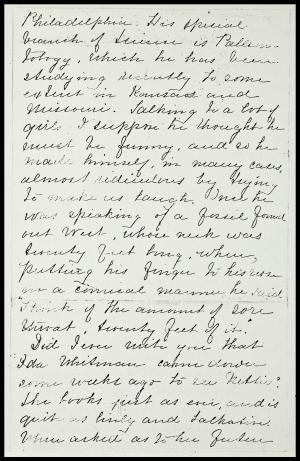 Philadelphia. His special
branch of science is Palaeon-
tology, which he has been
studying recently to some
extent in Kansas and
Missouri. Talking to a lot of
girls I suppose he thought he
must be funny, and so he
made himself, in many cases,
almost ridiculous by trying
to make us laugh. Once he
was speaking of a fossil found
out West, whose neck was
twenty feet long, when,
putting his finger to his nose
in a comical manner he said
Think of the amount of sore
throat, twenty feet of it.
Did I ever write you that
Ida Whitman came down
some weeks ago to see Kittie?
She looks just as ever, and is
quite as lively and talkative.
When asked as to her future